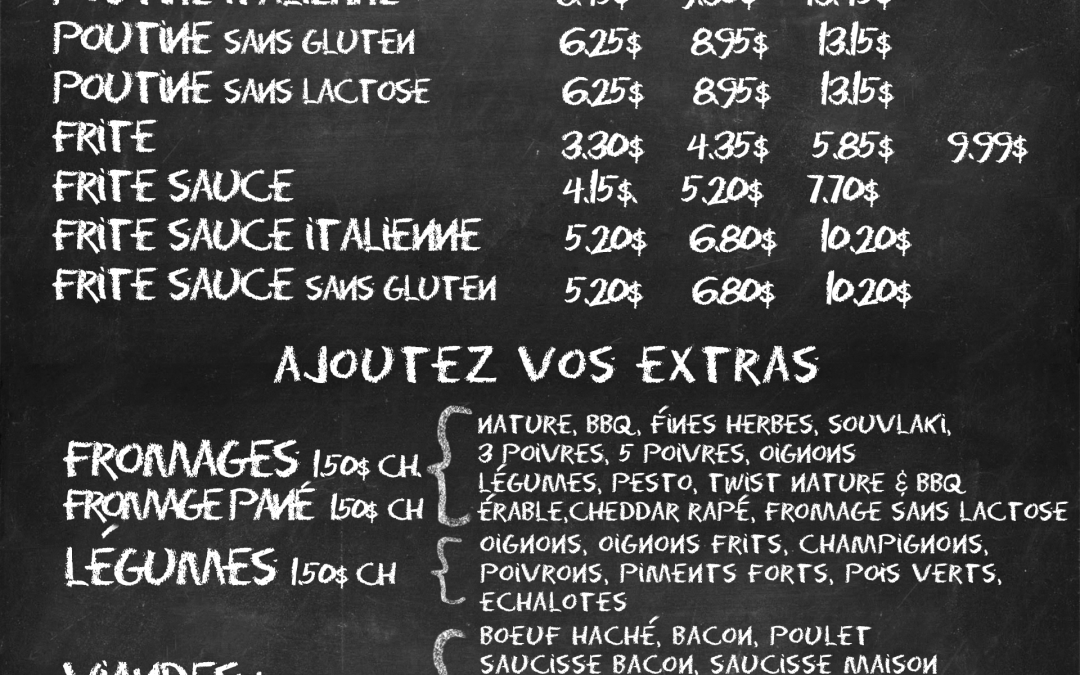 POUTINE SANS GLUTEN 6.25$ 8.95$ 13.15$
POUTINE SANS LACTOSE 6.25$ 8.95$ 13.15$
FRITE 3.30$ 4.35$ 5.85$ 9.99$
FRITE SAUCE 4.15$ 5.20$ 7.70$
FRITE SAUCE ITALIENNE 5.20$ 6.80$ 10.20$
FRITE SAUCE SANS GLUTEN 5.20$ 6.80$ 10.20$
AJOUTEZ VOS EXTRAS
FROMAGES 1.50$ CH.
FROMAGE PANÉ 1.50$ CH
NATURE, BBQ, FINES HERBES, SOUVLAKI,
3 POIVRES, 5 POIVRES, OIGNONS
LÉGUMES, PESTO, TWIST NATURE & BBQ
ÉRABLE,CHEDDAR RAPÉ, FROMAGE SANS LACTOSE
LÉGUMES 1.50$ CH
OIGNONS, OIGNONS FRITS, CHAMPIGNONS,
POIVRONS, PIMENTS FORTS, POIS VERTS,
ECHALOTES
BOEUF HACHÉ, BACON, POULET
SAUCISSE BACON, SAUCISSE MAISON